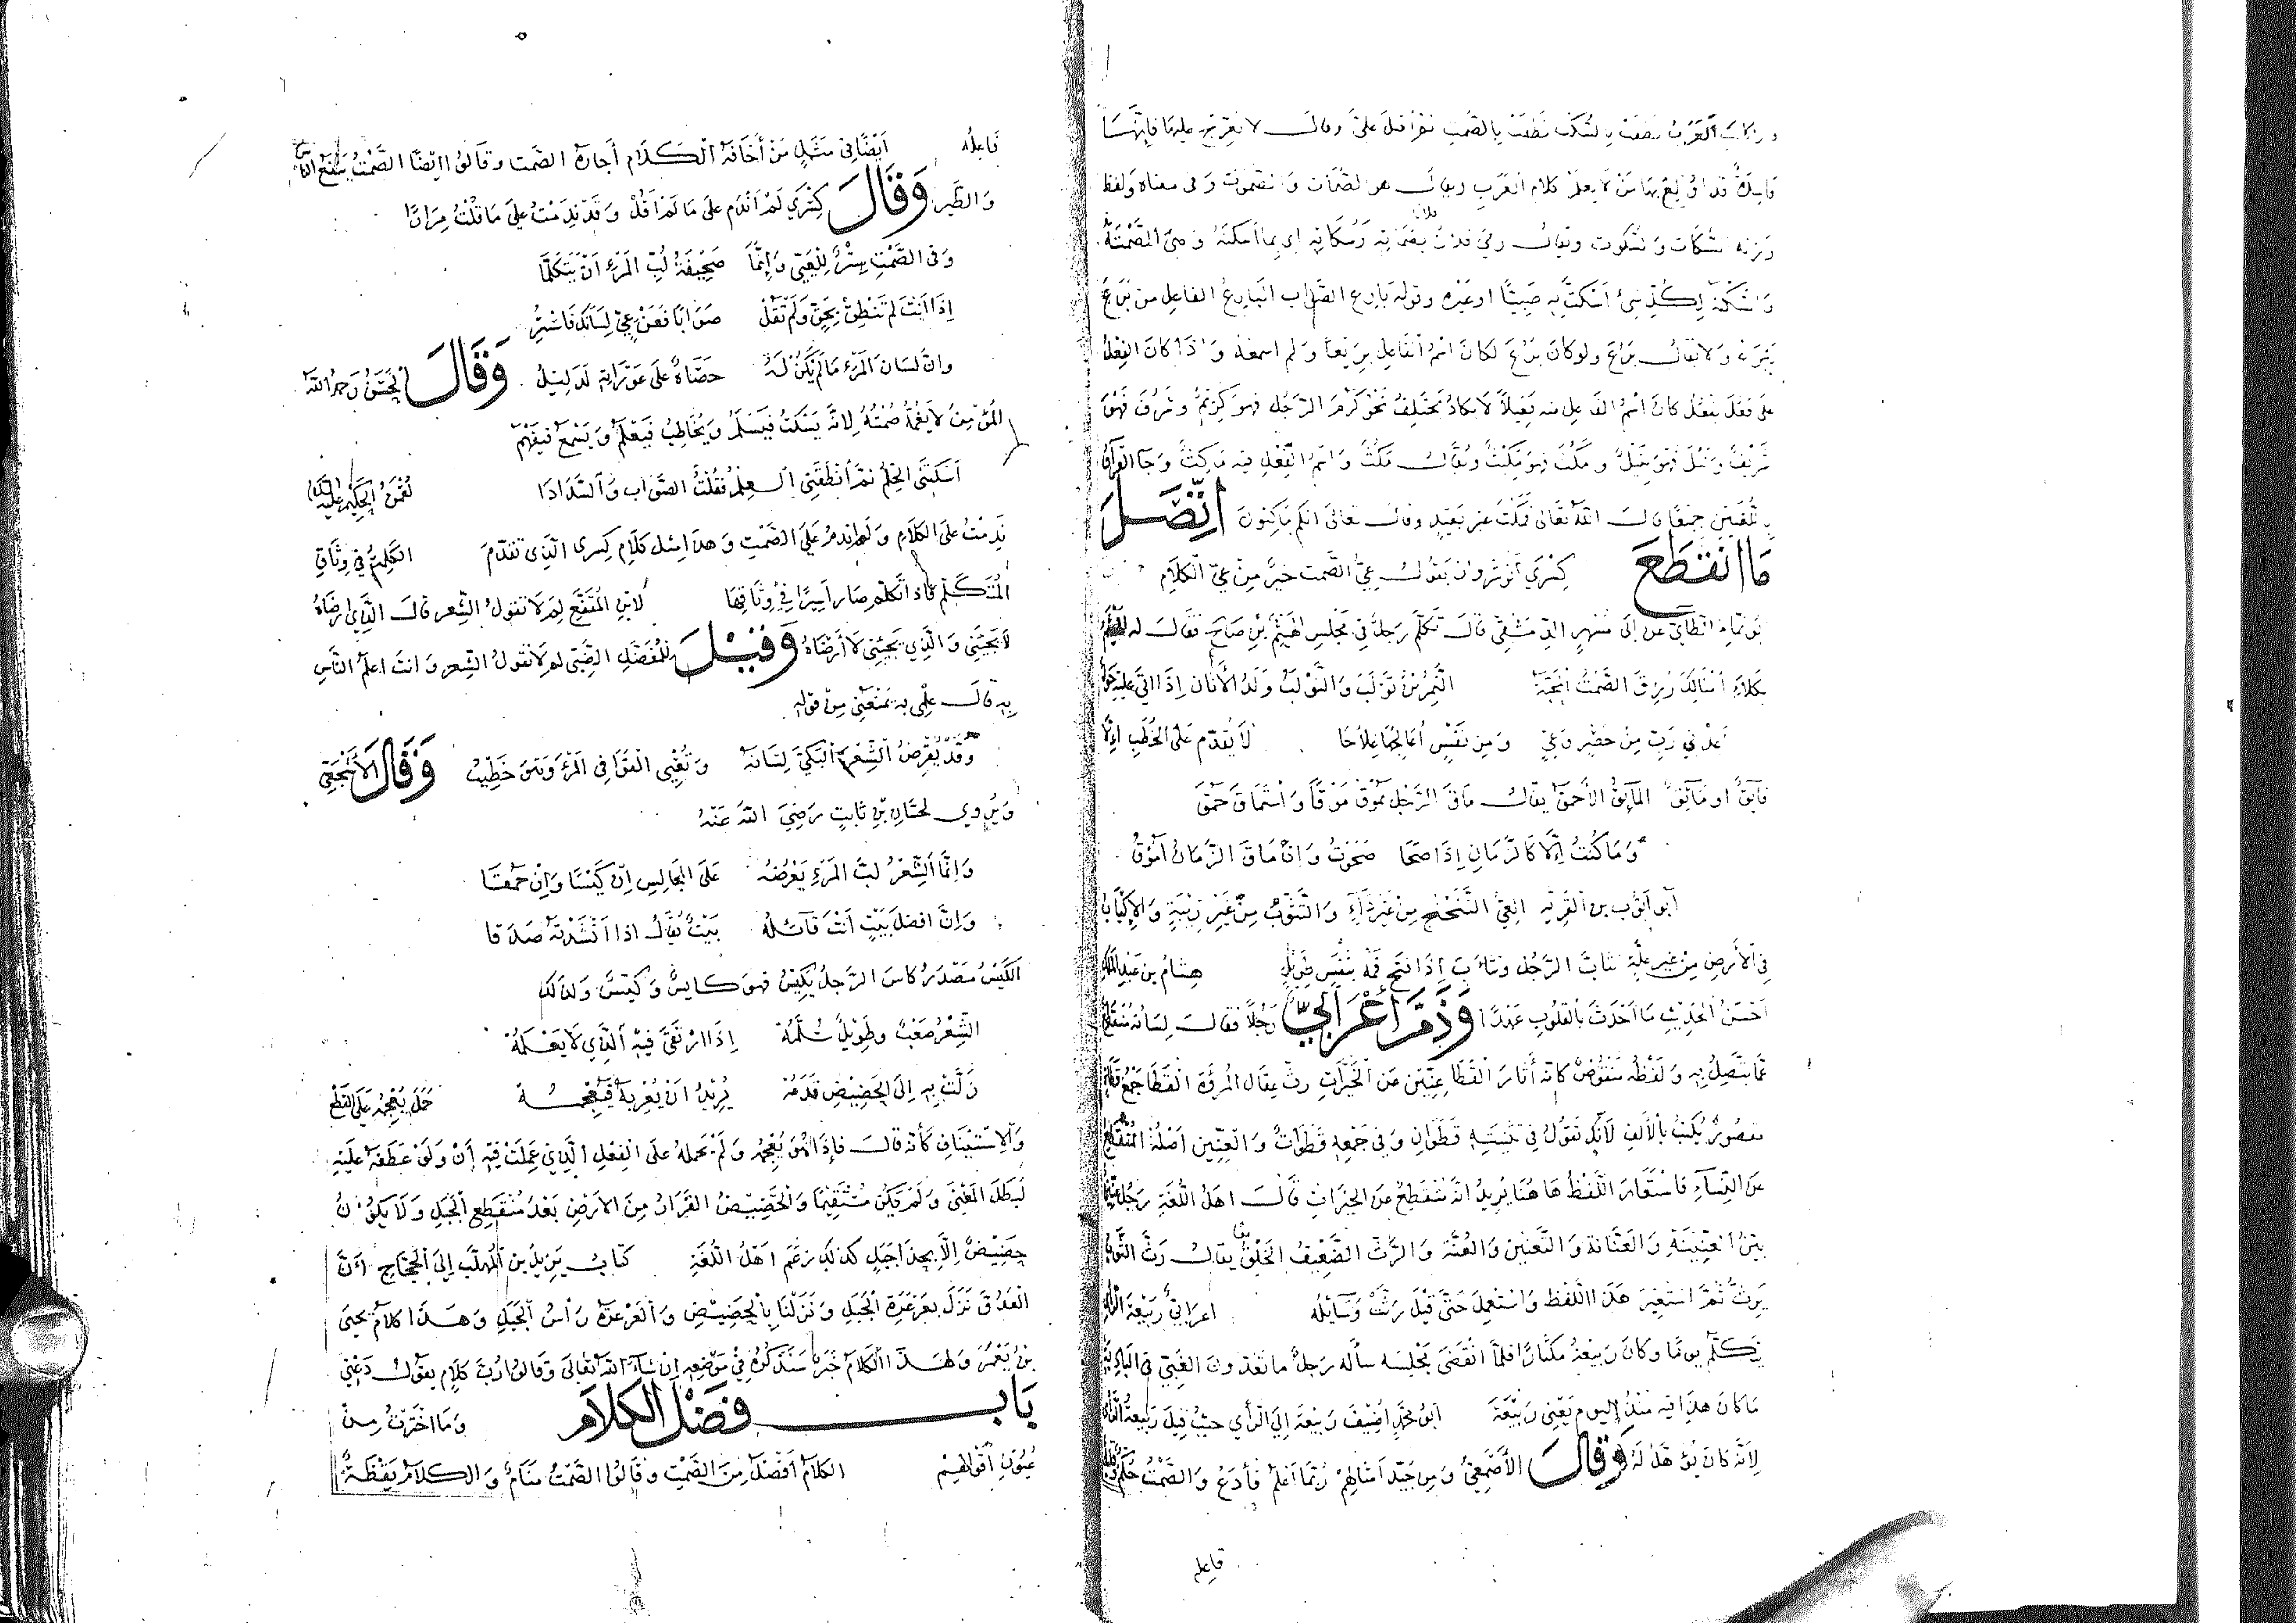 فائدة قد اولع بها من لا يعلم كلام العرب ويقال هو الصمات والصموت وفى معناه ولفظ
وزنه السكات والسكوت ويقال رمى فلان بصماته وسكاته اى بما اسكته وهى الصمتة
والسكتة لكل شئ اسكت به صبيا او غيره وقوله بارع الصواب البارع الفاعل من برع
يبرع ولا يقال برع ولو كان برع لكان اسم الفاعل بريعا ولم اسمعه واذا كان الفعل
على فعل يفعل كان اسم الفاعل منه فعيلا لا يكاد يختلف نحو كرم الرجل فهو كريم وشرف فهو
شريف ونبل فهو نبيل ومكث فهو مكيث ويقال مكث واسم الفعل فيه ماكث وجا القرآن
باللغتين جميعا قال الله تعالى فمكث غير بعيد وقال تعالى انكم ماكثون اتصل
ما انقطع كسرى أنوشروان يقول عي الصمت خير من عي الكلام
ابو تمام الطائي عن ابى مسهر الدمشقى قال تكلم رجل في مجلس الهيثم بن صالح فقال له الهيثم
بكلام امثالك رزق الصمت المحبة النمر بن تولب والتولب ولد الأتان اذا اتى عليه حول
أعذني رب من حصر وعي ومن نفس أعالجها علاجا لا يقدم على الخطب إلا
فائق او مائق المائق الأحمق يقال ماق الرجل يموق موقا واستماق حمق
وما كنت إلا كالزمان إذا صحا صحوت وان ماق الزمان أموق
أبو أيوب بن القرية العي التنحنح من غير داء والتثوب من غير ريبة والإكباب
في الأرض من غير علة ثئاب الرجل وتثاءب إذا فتح فمه بنفس طويل هشام بن عبد الملك
احسن الحديث ما احدث بالقلوب عهدا وذم أعرابي رجلا فقال لسانه منقطع
عما يتصل به ولفظه منقوض كانه أثار القطا عنين عن الخيرات رث عقال المروة القطا جمع قطاة
مقصور يكتب بالألف لأنك تقول في تثنيته قطوان وفي جمعه قطوات والعنين اصله المنقطع
عن النساء فاستعار اللفظ ها هنا يريد انه منقطع عن الخيرات قال اهل اللغة رجل عنين
بين العنينة والعنانة والتعنين والعنة والرث الضعيف الخلق يقال رث الثوب
يرث ثم استعير هذا اللفظ واستعمل حتى قيل رثت وسائله اعرابي ربيعة الراى
يتكلم يوما وكان ربيعة مكثارا فلما انقضى مجلسه سأله رجل ما تعدون العي في البادية
ما كان هذا فيه منذ اليوم يعني ربيعة ابو محمد اضيف ربيعة إلى الرأي حيث قيل ربيعة الرأي
لأنه كان يؤهل له وقال الأصمعي ومن جيد امثالهم ربما اعلم فأدع والصمت حكم وقليل
فاعله
فاعله أيضا في مثل من أخافه الكلام أجاره الصمت وقالوا ايضا الصمت ينفع الناس
والطير وقال كسرى لم اندم على ما لم اقل وقد ندمت على ما قلت مرارا
وفى الصمت ستر للعيي وإنما صحيفة لب المرء ان يتكلما
إذا انت لم تنطق بحق ولم تقل صوابا فعن عي لسانك فاستر
وان لسان المرء ما لم يكن له حصاة على عوراته لدليل وقال الحسن رحمه الله
المؤمن لا يغمه صمته لانه يسكت فيسلم ويخاطب فيعلم ويسمع فيفهم
اسكتني الحلم ثم أنطقني العلم فقلت الصواب والسدادا لقمن الحكيم عليه السلام
ندمت على الكلام ولم اندم على الصمت وهذا مثل كلام كسرى الذى تقدم الكلمة في وثاق
المتكلم فاذا تكلم صار اسيرا في وثاقها لابن المقفع لم لا تقول الشعر قال الذي ارضاه
لا يجيئني والذي يجيئني لا أرضاه وقيل للمفضل الضبى لم لا تقول الشعر وانت اعلم الناس
به قال علمى به يمنعنى من قوله
وقد يقرض الشعر البكي لسانه وتعيى القوافى المرء وهو خطيب وقال الأشجعي
ويروى لحسان بن ثابت رضي الله عنه
وانما الشعر لب المرء يعرضه على المجالس ان كيسا وان حمقا
وان افضل بيت أنت قائله بيت يقال اذا انشدته صدقا
الكيس مصدر كاس الرجل يكيس فهو كايس وكيس وكذلك
الشعر صعب وطويل سلمه إذا ارتقى فيه الذي لا يعلمه
زلت به إلى الحضيض قدمه يريد ان يعربه فيعجمه حمل يعجمه على القطع
والاستيناف كأنه قال فاذا هو يعجمه ولم يحمله على الفعل الذي عملت فيه أن ولو عطفه عليه
لبطل المعنى ولم يكن مستقيما والحضيض القرار من الأرض بعد منقطع الجبل ولا يكون
حضيض إلا بحذا جبل كذلك زعم اهل اللغة كتاب يزيد بن المهلب إلى الحجاج أن
العدو نزل بعرعرة الجبل ونزلنا بالحضيض والعرعرة رأس الجبل وهذا كلام يحيى
بن يعمر ولهذا الكلام خبر سنذكره في موضعه إن شاء الله تعالى وقالوا رب كلام يقول دعني
باب فضل الكلام وما اخترت من
عيون أقوالهم الكلام أفضل من الصمت وقالوا الصمت منام والكلام يقظة